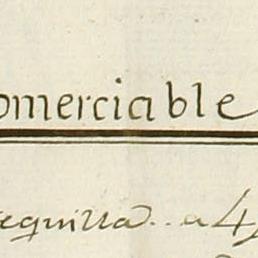 omerciable
equilla.. a 4